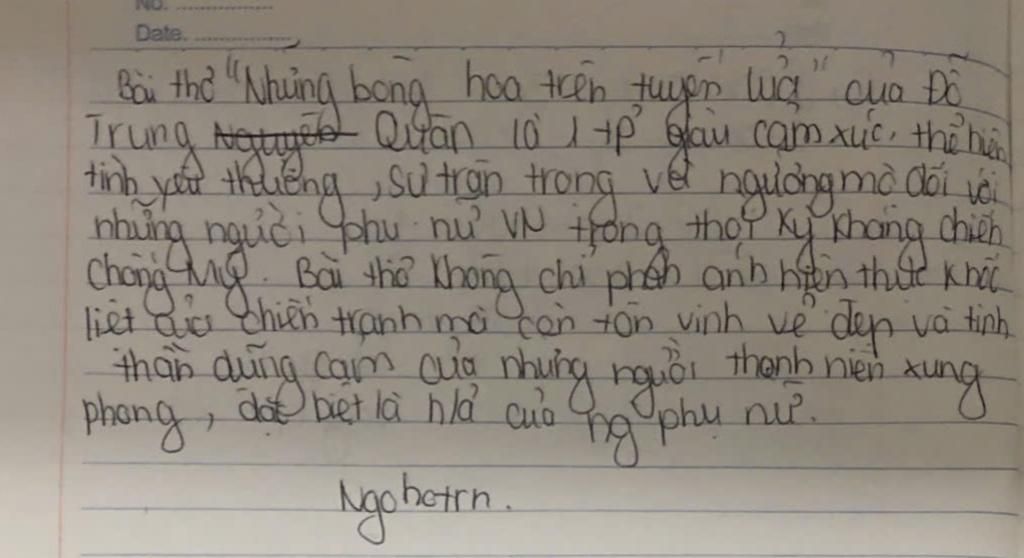 No. ..................
Date. ..................
Bài thơ "Những bông hoa trên tuyến lửa" của Đỗ
Trung Nguyên Quân là 1 tp giàu cảm xúc, thể hiện
tình yêu thương, sự trân trọng và ngưỡng mộ đối với
những người phụ nữ VN trong thời kỳ kháng chiến
chống Mỹ. Bài thơ không chỉ phản ánh hiện thực khốc
liệt của chiến tranh mà còn tôn vinh vẻ đẹp và tinh
thần dũng cảm của những người thanh niên xung
phong, đặt biệt là h/ả của ng phụ nữ.
Ngohotrn.